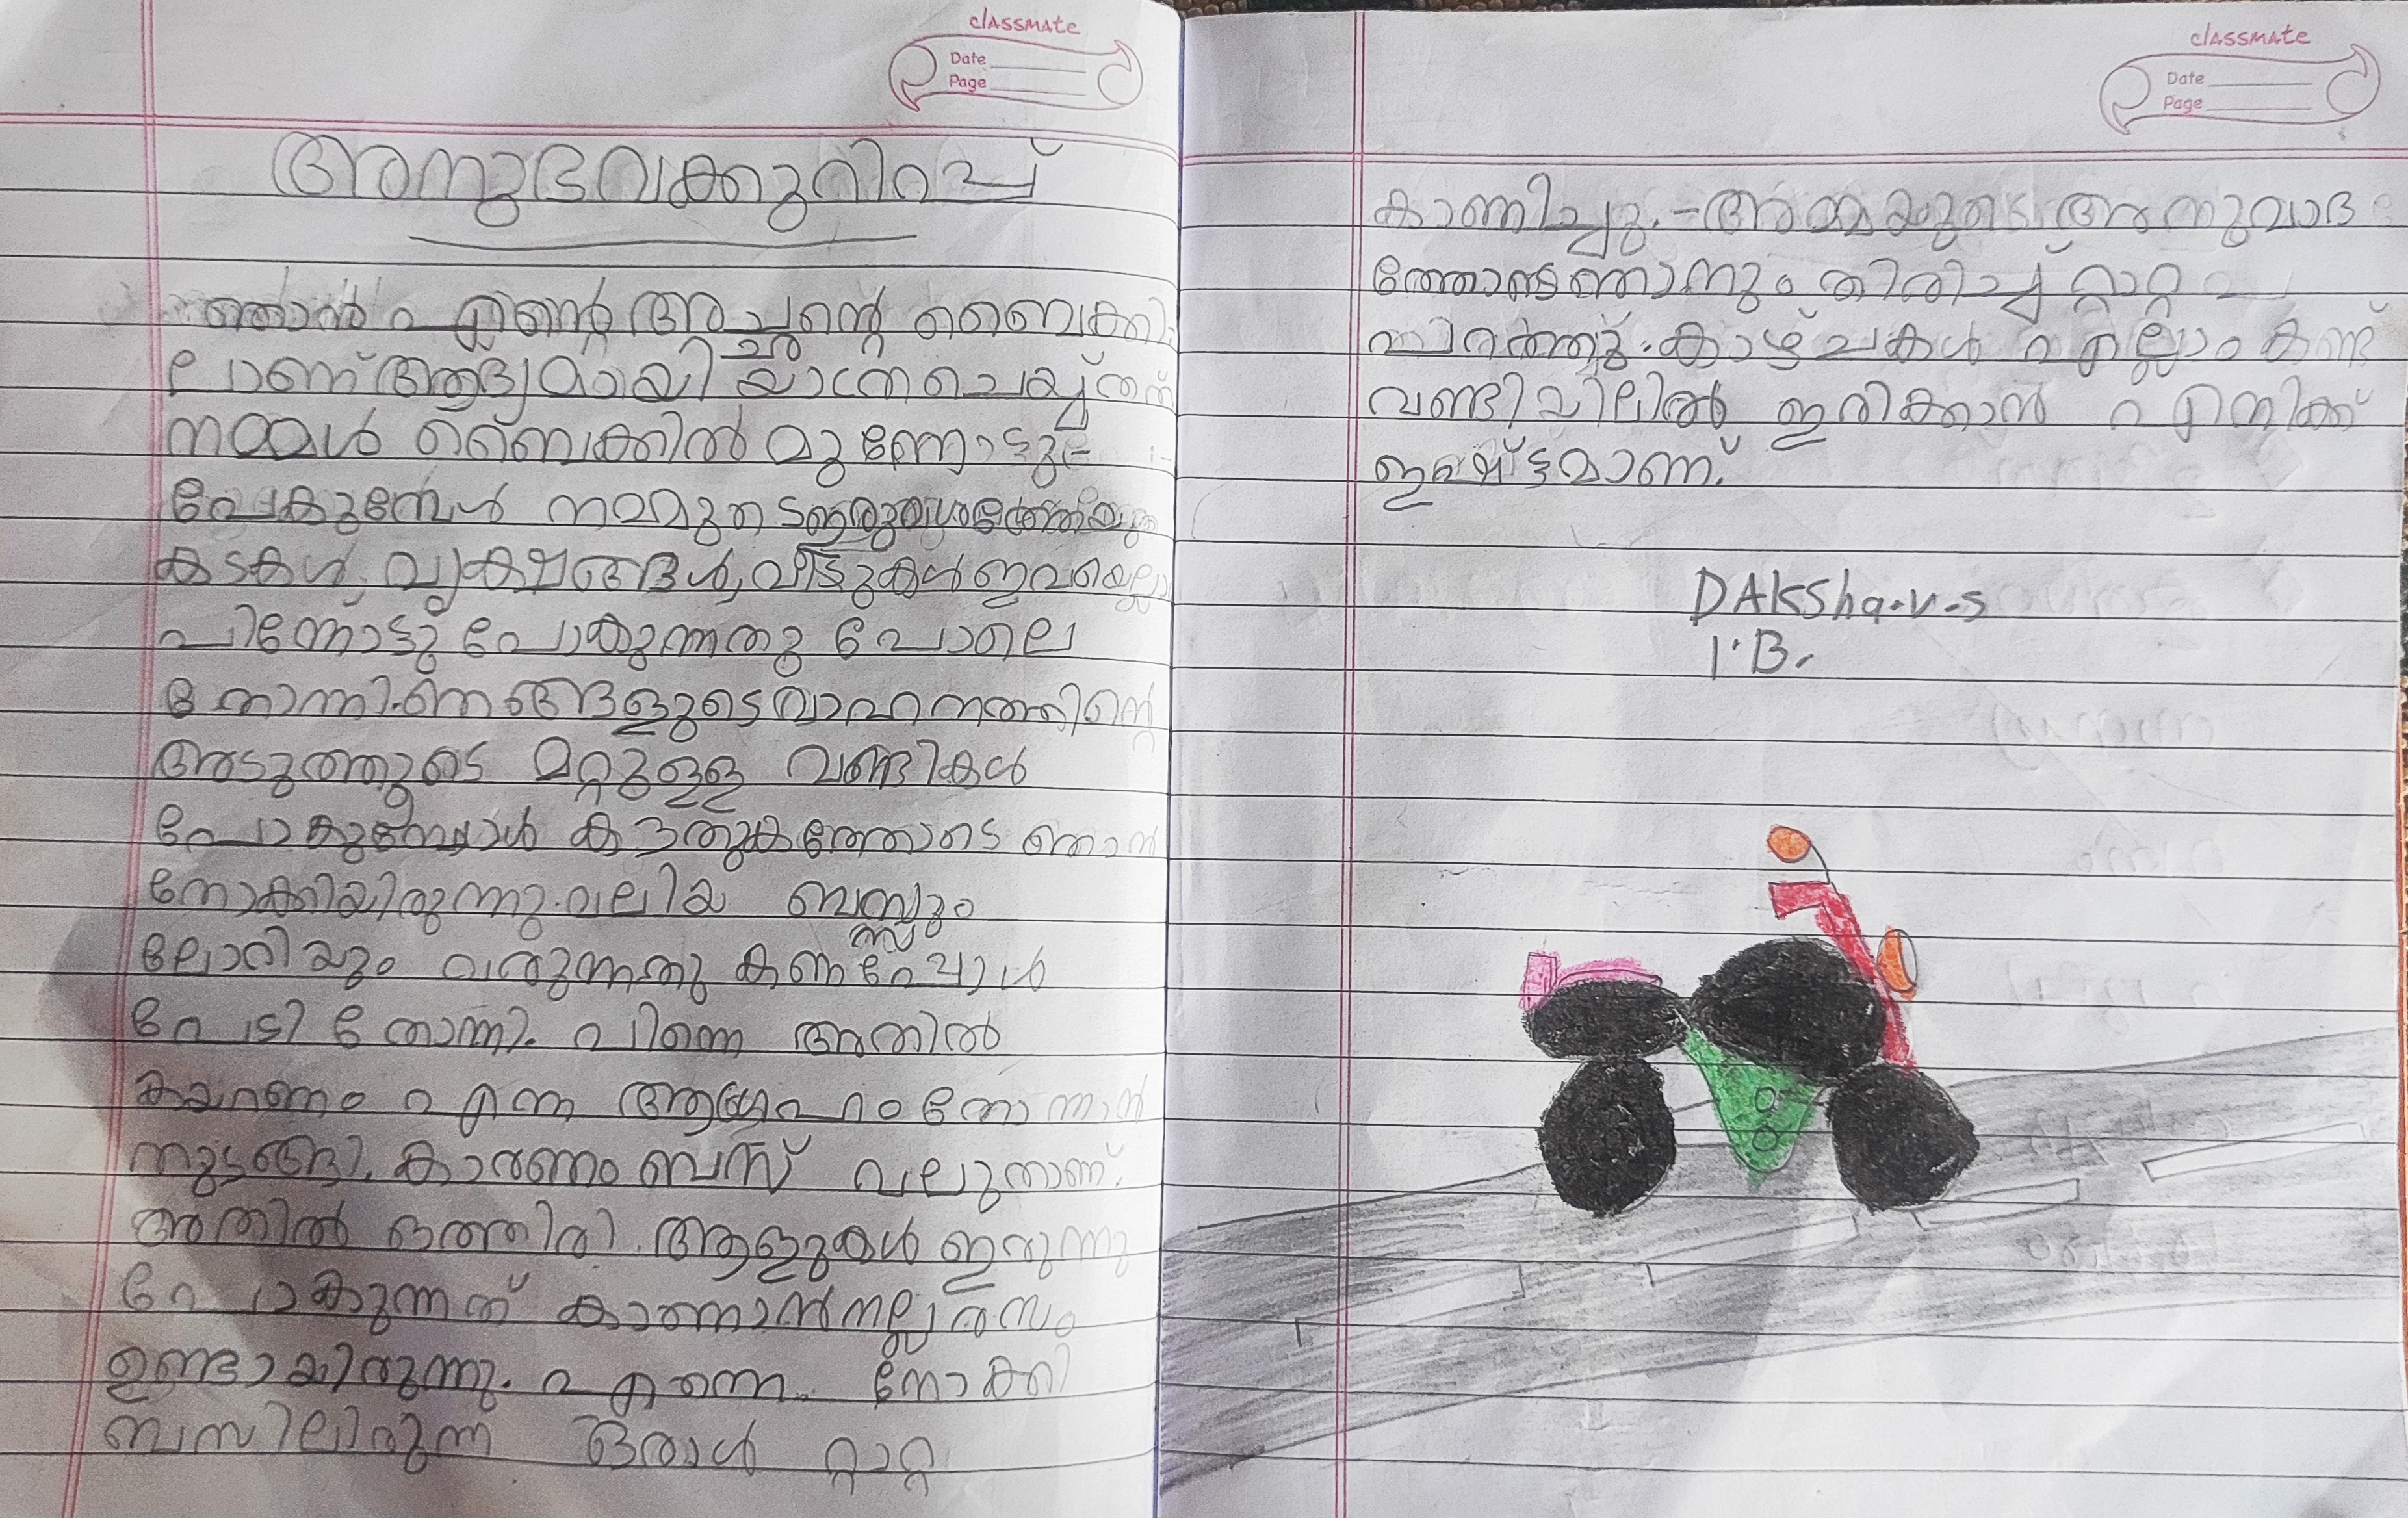 classmate
Date
Page
അനുഭവക്കുറിപ്പ്
ഞാൻ എന്റെ അച്ഛന്റെ ബൈക്കി
ലാണ് ആദ്യമായി യാത്ര ചെയ്തത്
നമ്മൾ ബൈക്കിൽ മുന്നോട്ടു
പോകുമ്പോൾ നമ്മുടെ ഇരുവശത്തെയും
കടകൾ, വൃക്ഷങ്ങൾ, വീട്ടുകൾ ഇവയെല്ലാ
പിന്നോട്ടു പോകുന്നതു പോലെ
തോന്നി. ഞങ്ങളുടെ വാഹനത്തിന്റെ
അടുത്തുടെ മറ്റുള്ള വണ്ടികൾ
പോകുമ്പോൾ കൗതുകത്തോടെ ഞാൻ
നോക്കിയിരുന്നു. വലിയ ബസ്സും
ലോറിയും വരുന്നതു കണ്ടപ്പോൾ
പേടി തോന്നി. പിന്നെ അതിൽ
കയറണം എന്ന ആഗ്രഹം തോന്നാൻ
തുടങ്ങി. കാരണം ബസ് വലുതാണ്.
അതിൽ ഒത്തിരി ആളുകൾ ഇരുന്നു
പോകുന്നത് കാണാൻ നല്ല രസം
ഉണ്ടായിരുന്നു. എന്നെ നോക്കി
ബസിലിരുന്ന ഒരാൾ റ്റാറ്റ
classmate
Date
Page
കാണിച്ചു. അമ്മയുടെ അനുവാദ
ത്തോടെ ഞാനും തിരിച്ച് റ്റാറ്റ
കാഴ്ചകൾ എല്ലാം കണ്ട്
വണ്ടിയിലിൽ ഇരിക്കാൻ എനിക്ക്
ഇഷ്ട്ടമാണ്.
DAKSha.v.s
1.B.